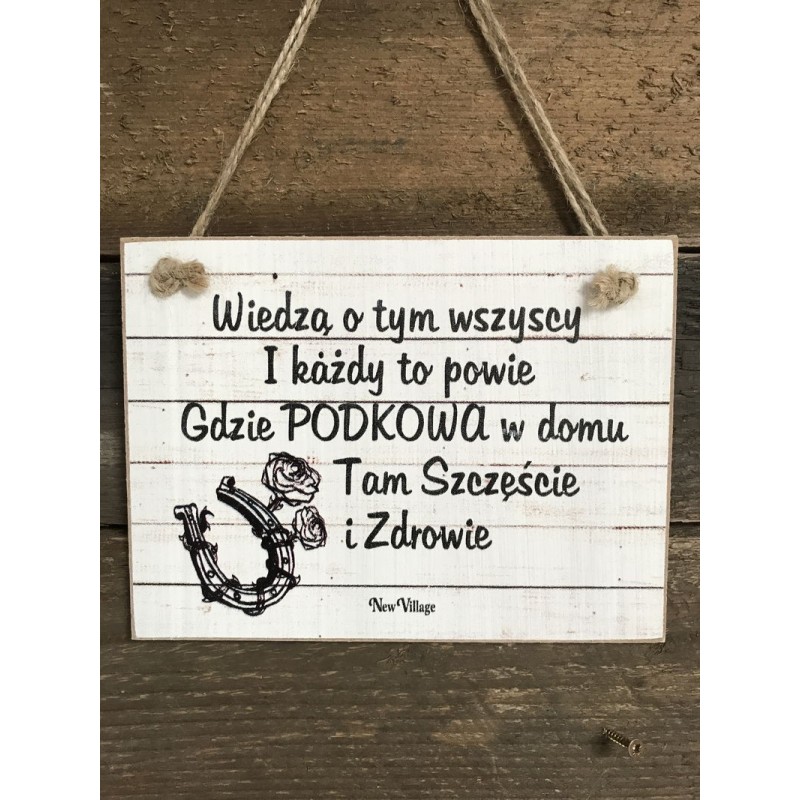 Wiedzą o tym wszyscy
I każdy to powie
Gdzie PODKOWA w domu
Tam Szczęście
i Zdrowie
New Village